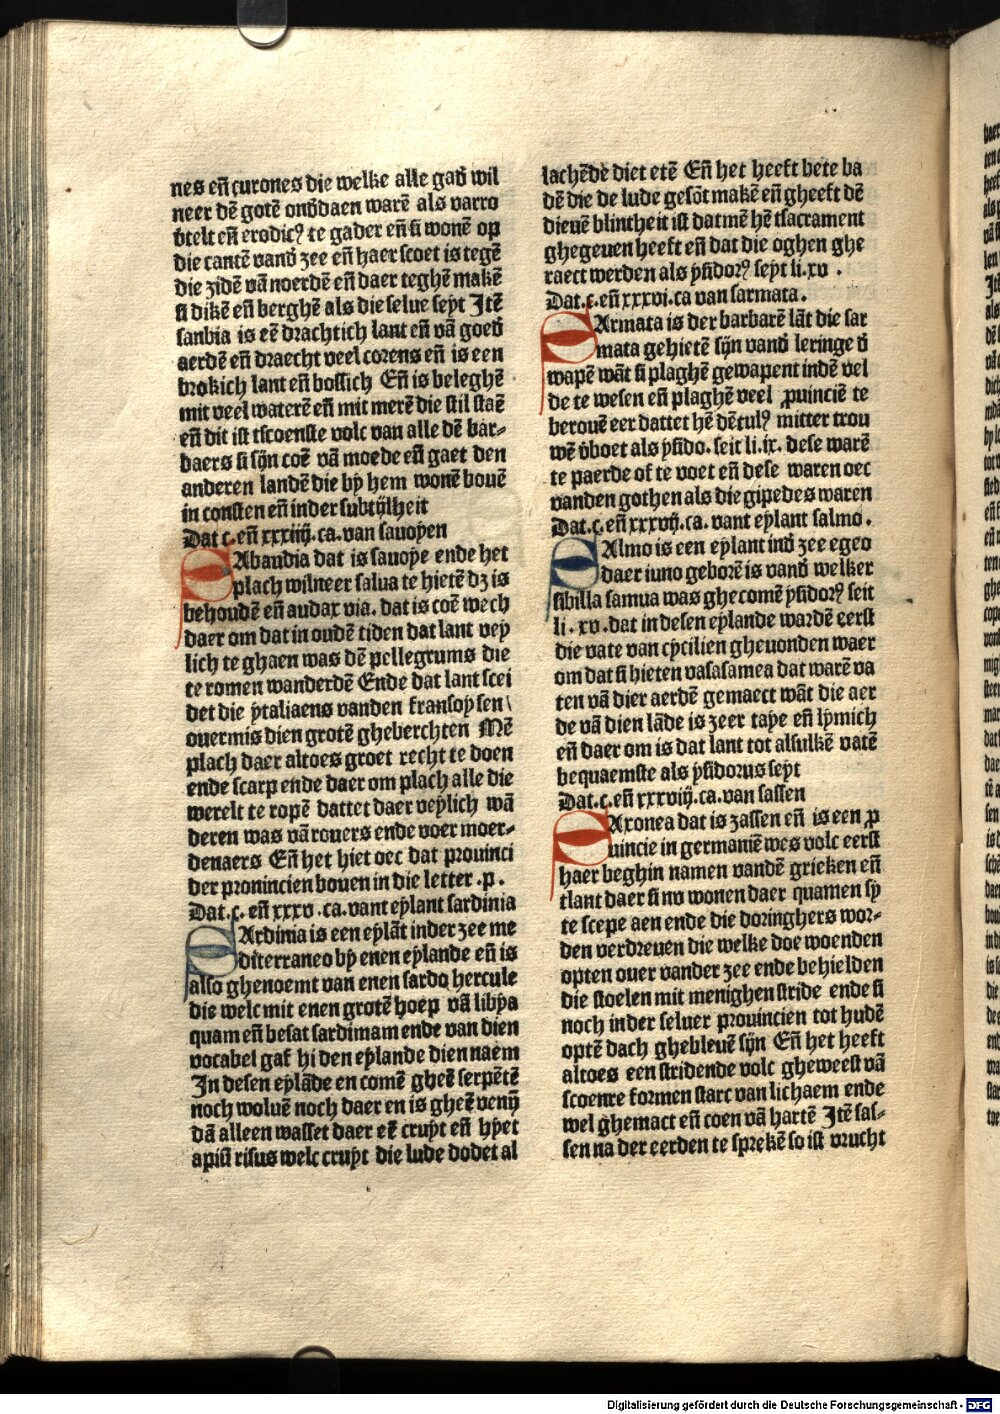 nes eñ curones die welke alle gad̕ wil
neer dē gotē ond̕daen warē als varro
v̕telt eñ erodicꝰ te gader eñ si wonē op
die cantē vand̕ zee eñ haer scoet is tegē
die zidē vā noerdē eñ daer teghē makē
si dikē eñ berghē als die selue seyt Jtē
sanbia is eē drachtich lant eñ vā goed̕
aerdē eñ draecht veel corens eñ is een
brokich lant eñ bossich Eñ is beleghē
mit veel waterē eñ mit merē die stil staē
eñ dit ist tscoenste volc van alle dē bar-
baers si sijn coē vā moede eñ gaet den
anderen landē die bÿ hem wonē bouē
in consten eñ inder subtijlheit
Dat .c. eñ xxxiiij. ca. van sauoyen
Abaudia dat is sauoye ende het
plach wilneer salua te hietē dz is
behoudē eñ audax via. dat is coē wech
daer om dat in oudē tiden dat lant vey
lich te ghaen was dē pellegrums die
te romen wanderdē Ende dat lant scei
det die ytaliaens vanden fransoysen
ouermis dien grotē gheberchten Mē
plach daer altoes groet recht te doen
ende scarp ende daer om plach alle die
werelt te ropē dattet daer veylich wā
deren was vā rouers ende voer moer-
denaers Eñ het hiet oec dat prouinci
der pronincien bouen in die letter .p.
Dat .c. eñ xxxv .ca. vant eylant sardinia
Ardinia is een eylāt inder zee me
diterraneo by enen eylande eñ is
also ghenoemt van enen sardo hercule
die welc mit enen grotē hoep vā libya
quam eñ besat sardimam ende van dien
vocabel gaf hi den eylande dien naem
Jn desen eylāde en comē gheē serpētē
noch woluē noch daer en is gheē venij
dā alleen wasset daer eē cruyt eñ hyet
apisi risus welc cruyt die lude dodet al
lachēdē diet etē Eñ het heeft hete ba
dē die de lude gesōt makē eñ gheeft dē
dieuē blintheit ist datmē hē tsacrament
ghegeuen heeft eñ dat die oghen ghe
raect werden als ysidorꝰ seyt li. xv .
Dat .c. eñ xxxvi. ca van sarmata.
Armata is der barbarē lāt die sar
mata gehietē sijn vand̕ leringe d̕
wapē wāt si plaghē gewapent indē vel
de te wesen eñ plaghē veel ꝓuinciē te
berouē eer dattet hē dētulꝰ mitter trou
wē v̕boet als ysido. seit li. ix. dese warē
te paerde of te voet eñ dese waren oec
vanden gothen als die gipedes waren
Dat .c. eñ xxxvij. ca. vant eylant salmo.
Almo is een eylant ind̕ zee egeo
daer iuno geborē is vand̕ welker
sibilla samua was ghecomē ysidorꝰ seit
li. xv. dat in desen eylande wardē eerst
die vate van cycilien gheuonden waer
om dat si hieten vasasamea dat warē va
ten vā dier aerdē gemaect wāt die aer
de vā dien lāde is zeer taye eñ lymich
eñ daer om is dat lant tot alsulkē vatē
bequaemste als ysidorus seyt
Dat .c. eñ xxxviij. ca. van sassen
Axonea dat is zassen eñ is een ꝓ
uincie in germaniē wes volc eerst
haer beghin namen vandē grieken eñ
tlant daer si nv wonen daer quamen sy
te scepe aen ende die doringhers wor-
den verdreuen die welke doe woenden
opten ouer vander zee ende behielden
die stoelen mit menighen stride ende si
noch inder seluer prouincien tot hudē
optē dach ghebleuē sijn Eñ het heeft
altoes een stridende volc gheweest vā
scoenre formen starc van lichaem ende
wel ghemact eñ coen vā hartē Jtē sas-
sen na der eerden te sprekē so ist vrucht
Digitalisierung gefördert durch die Deutsche Forschungsgemeinschaft - DFG